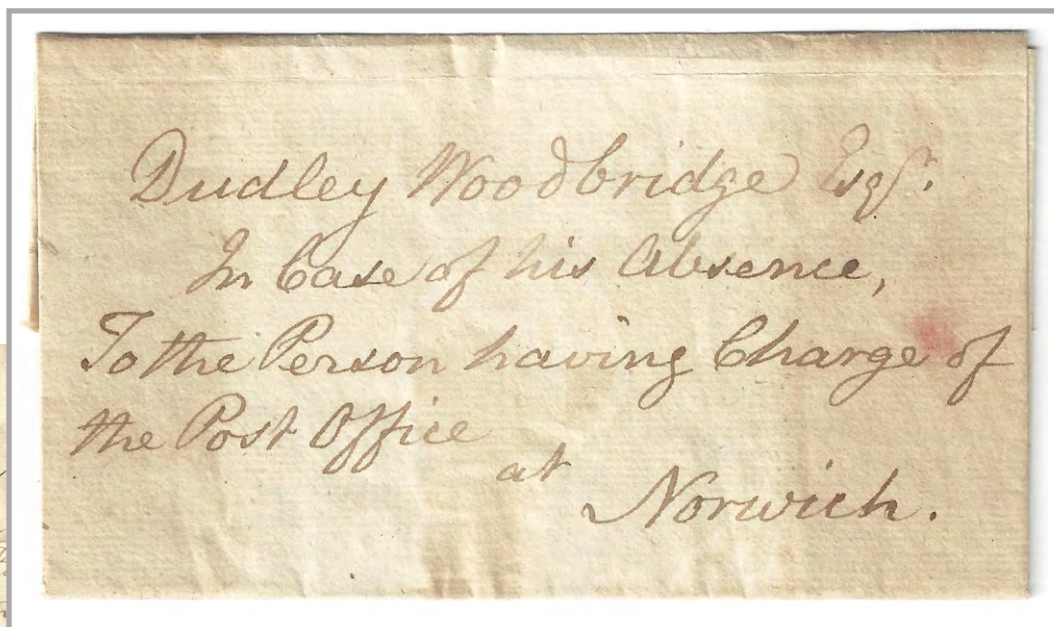 Dudley Woodbridge Esqr.
In Case of his Absence,
To the Person having Charge of
the Post Office
at
Norwich.